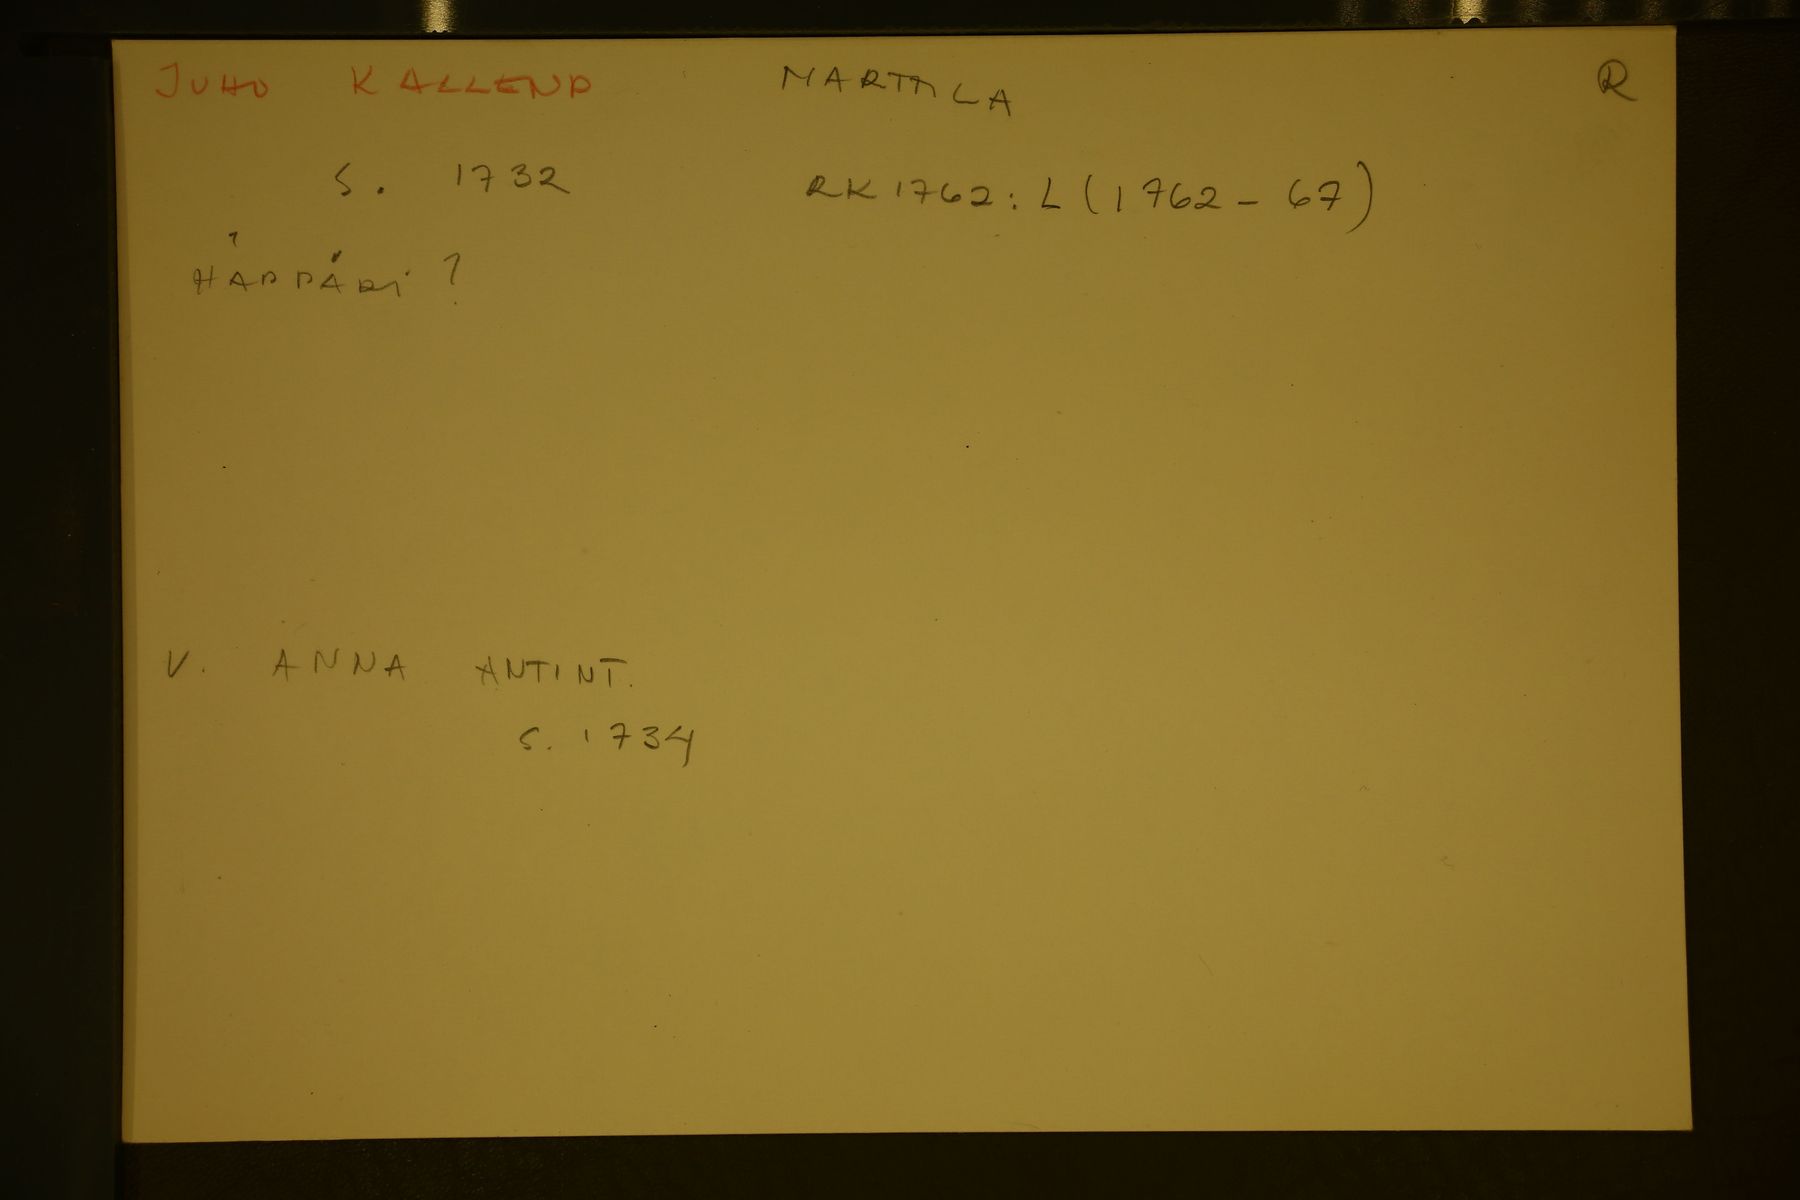 JUHO KALLENP MARTTILA R
S. 1732 RK 1762: L (1762-67)
HÄPPÄRI?
V. ANNA ANTINT.
S. 1734